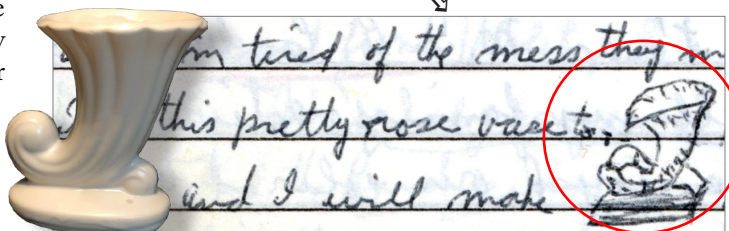 'm tired of the mess they m
this pretty rose vase to.
and I will make